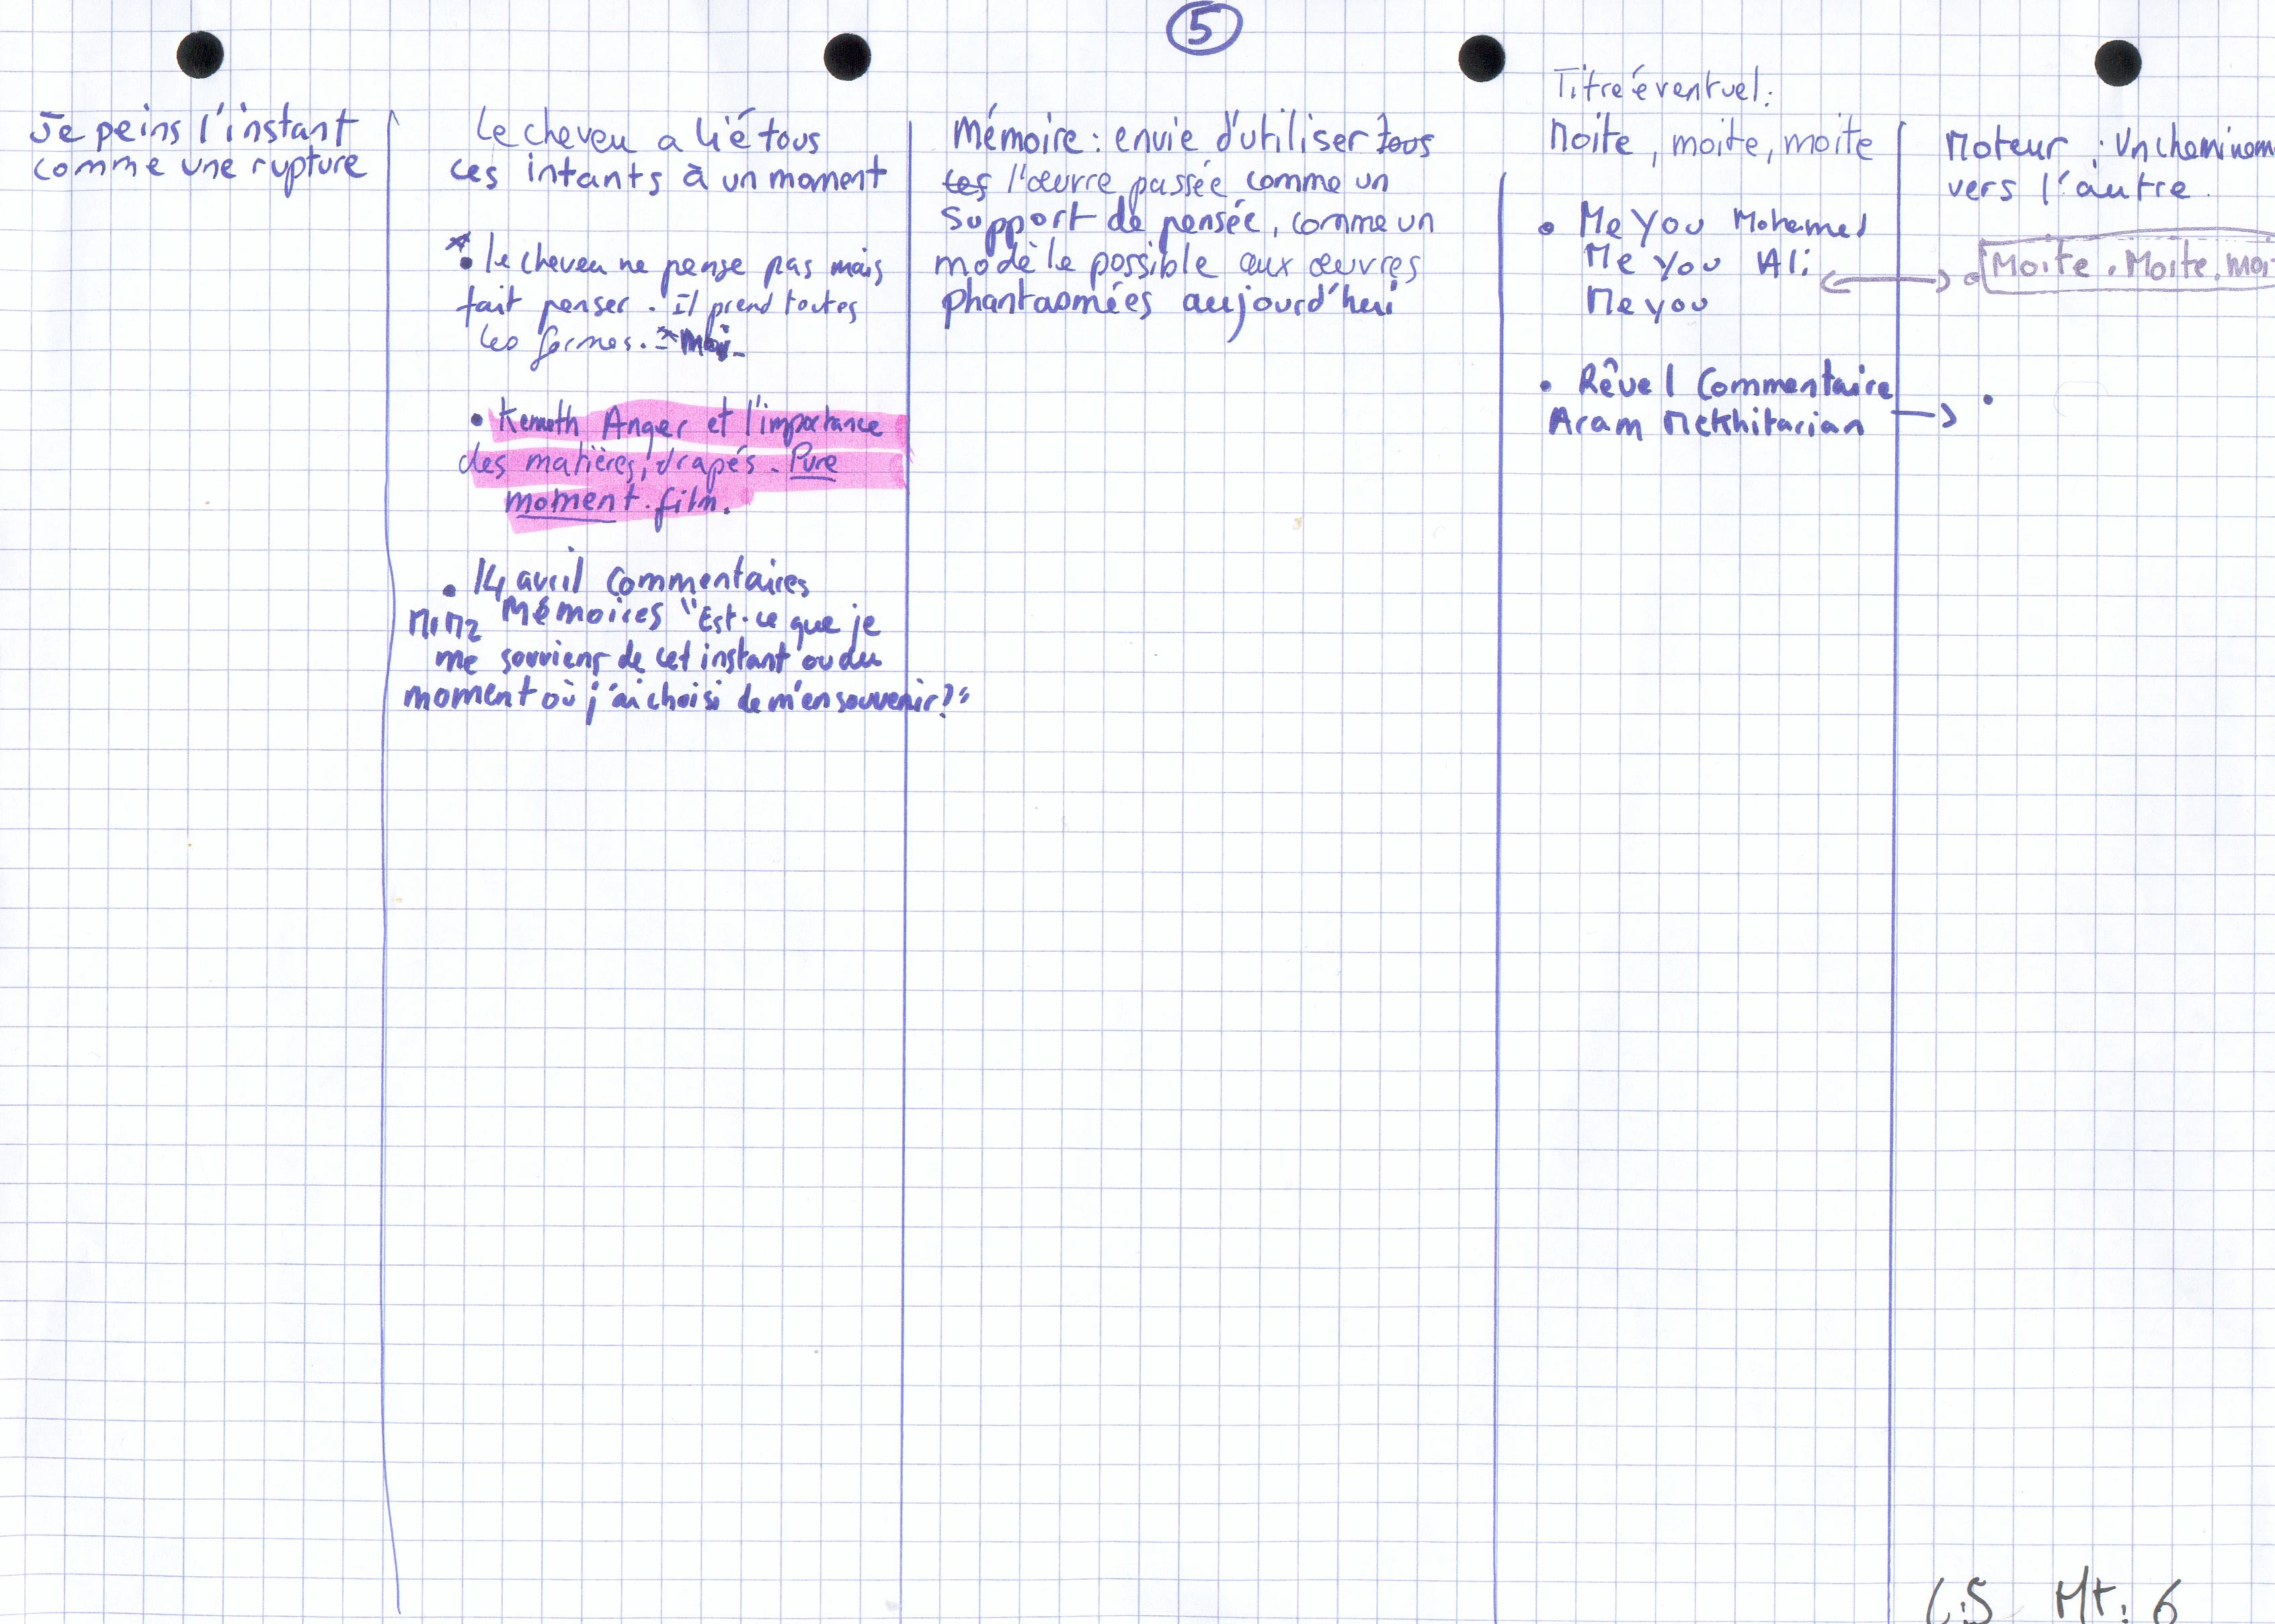 5
Je peins l'instant
comme une rupture
Le cheveu a lié tous
ces intants à un moment
• le cheveu ne pense pas mais
fait penser. Il prend toutes
les formes.
• Kenneth Anger et l'importance
des matières, drapés. Pure
moment. film.
• 14 avril Commentaires
M1 M2 Mémoires "Est-ce que je
me souviens de cet instant ou du
moment où j'ai choisi de m'en souvenir?"
Mémoire : envie d'utiliser tous
les l'œuvre passée comme un
support de pensée, comme un
modèle possible aux œuvres
phantasmées aujourd'hui
Titre éventuel :
Moite, moite, moite
• Me You Mohamed
Me you Ali
Me you
• Rêve 1 Commentaire
Aram Mekhitarian →
Moteur : Un cheminem
vers l'autre.
Moite. Moite. moi